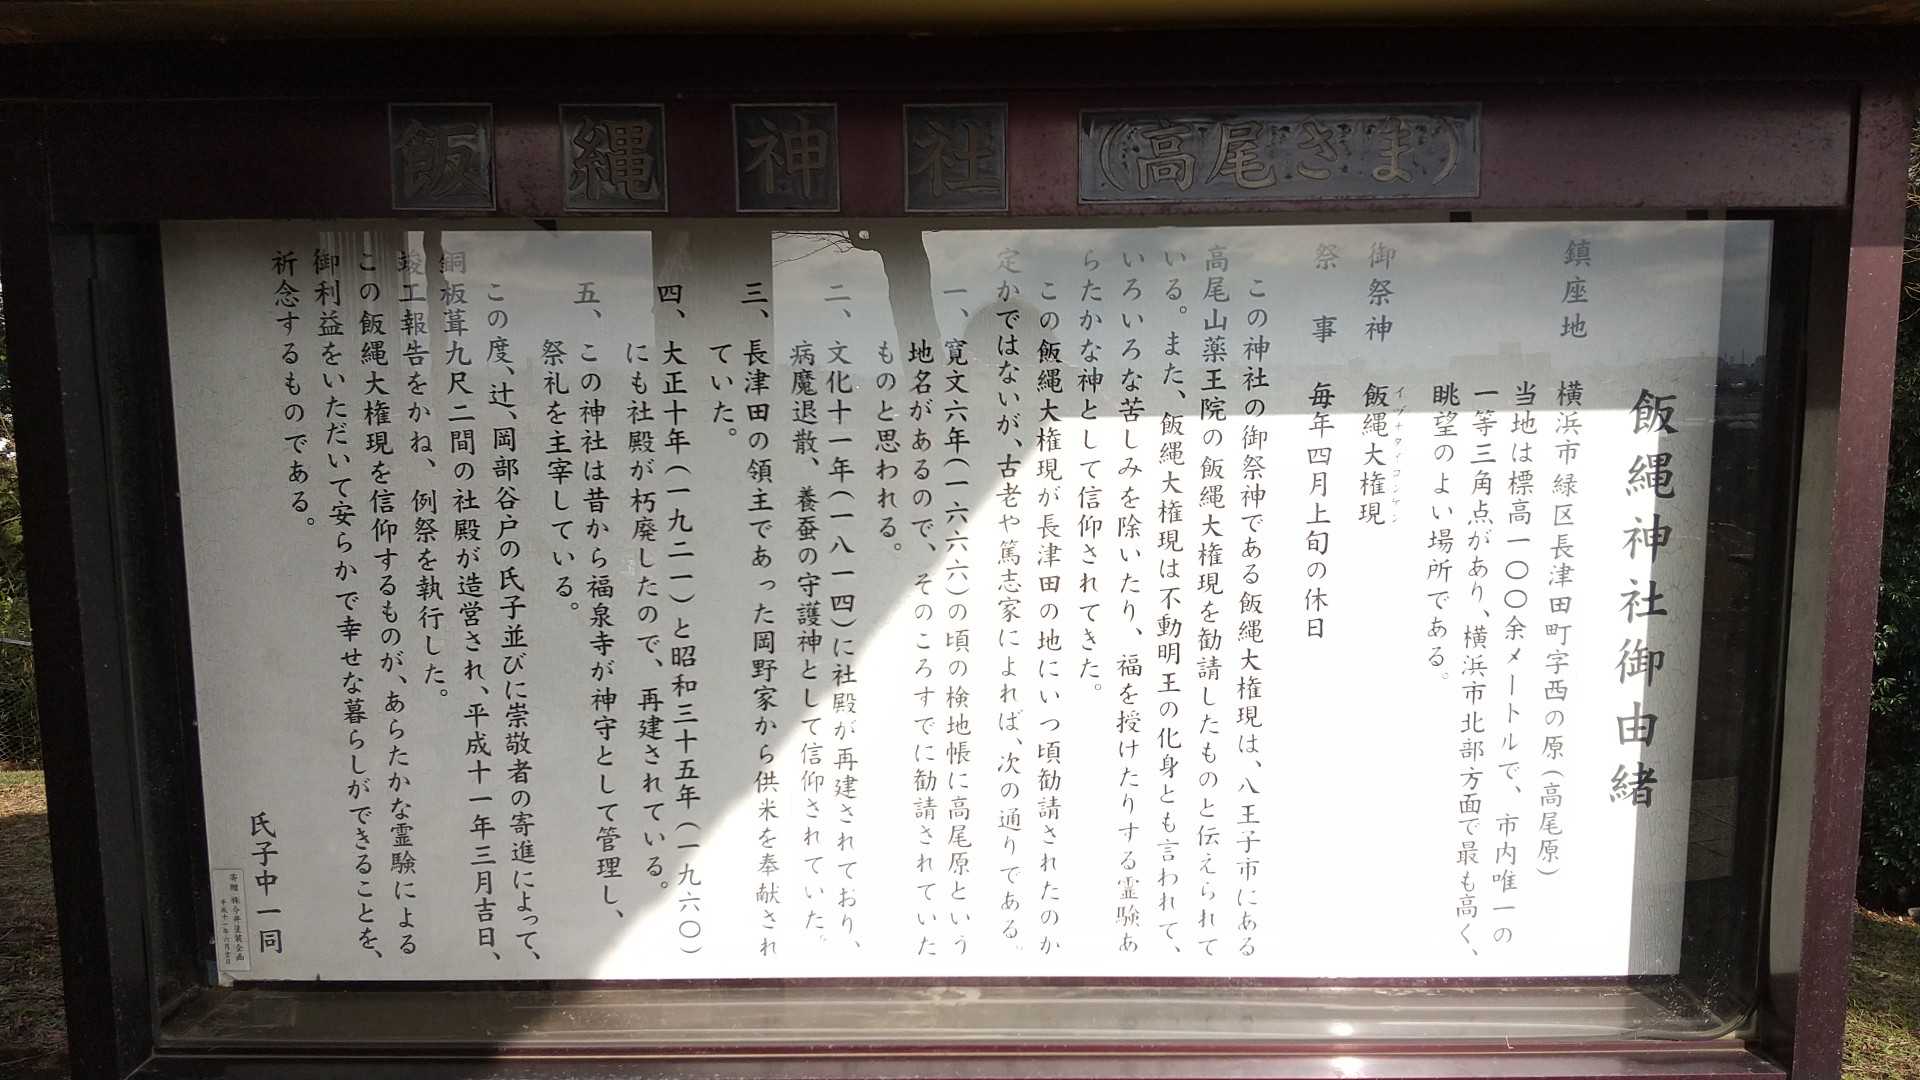 飯縄神社（高尾さま）
飯縄神社御由緒
鎮座地　横浜市緑区長津田町字西の原（高尾原）
当地は標高一〇〇余メートルで、市内唯一の
一等三角点があり、横浜市北部方面で最も高く、
眺望のよい場所である。
御祭神　飯縄大権現
イヅナダイゴンゲン
祭　事　毎年四月上旬の休日
この神社の御祭神である飯縄大権現は、八王子市にある
高尾山薬王院の飯縄大権現を勧請したものと伝えられて
いる。また、飯縄大権現は不動明王の化身とも言われて、
いろいろな苦しみを除いたり、福を授けたりする霊験あ
らたかな神として信仰されてきた。
この飯縄大権現が長津田の地にいつ頃勧請されたのか
定かではないが、古老や篤志家によれば、次の通りである。
一、寛文六年（一六六六）の頃の検地帳に高尾原という
地名があるので、そのころすでに勧請されていた
ものと思われる。
二、文化十一年（一八一四）に社殿が再建されており、
病魔退散、養蚕の守護神として信仰されていた。
三、長津田の領主であった岡野家から供米を奉献され
ていた。
四、大正十年（一九二一）と昭和三十五年（一九六〇）
にも社殿が朽廃したので、再建されている。
五、この神社は昔から福泉寺が神守として管理し、
祭礼を主宰している。
この度、辻、岡部谷戸の氏子並びに崇敬者の寄進によって、
銅板葺九尺二間の社殿が造営され、平成十一年三月吉日、
竣工報告をかね、例祭を執行した。
この飯縄大権現を信仰するものが、あらたかな霊験による
御利益をいただいて安らかで幸せな暮らしができることを、
祈念するものである。
氏子中一同
寄贈 ㈱今井塗装企画
平成十一年六月吉日